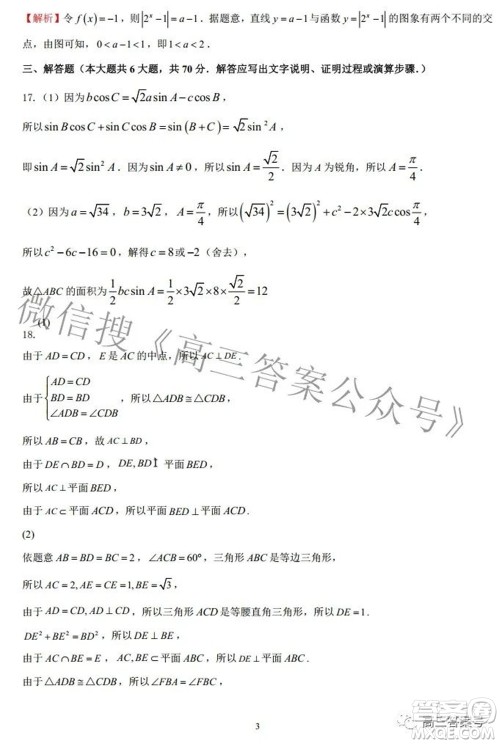 【解析】令 f(x)=-1，则|2^x-1|=a-1．据题意，直线 y=a-1与函数 y=|2^x-1|的图象有两个不同的交
点，由图可知，0<a-1<1，即1<a<2．
三、解答题（本大题共 6 大题，共 70 分．解答应写出文字说明、证明过程或演算步骤.）
17.（1）因为bcosC=√2asinA-ccosB，
所以sinBcosC+sinCcosB=sin(B+C)=√2sin²A，
即sinA=√2sin²A．因为sinA≠0，所以sinA=√2/2．因为A为锐角，所以A=π/4．
（2）因为a=√34，b=3√2，A=π/4，所以(√34)²=(3√2)²+c²-2×3√2c cosπ/4，
所以c²-6c-16=0，解得c=8或-2（舍去），
故△ABC的面积为1/2bcsinA=1/2×3√2×8×√2/2=12
18. (1)
由于AD=CD，E是AC的中点，所以AC⊥DE．
由于{AD=CD BD=BD ∠ADB=∠CDB，所以△ADB≅△CDB，
所以AB=CB，故AC⊥BD，
由于DE∩BD=D，DE,BD 平面BED，
所以AC⊥平面BED，
由于AC⊂平面ACD，所以平面BED⊥平面ACD．
(2)
依题意AB=BD=BC=2，∠ACB=60°，三角形ABC是等边三角形，
所以AC=2,AE=CE=1,BE=√3，
由于AD=CD,AD⊥CD，所以三角形ACD是等腰直角三角形，所以DE=1．
DE²+BE²=BD²，所以DE⊥BE，
由于AC∩BE=E，AC,BE⊂平面ABC，所以DE⊥平面ABC．
由于△ADB≅△CDB，所以∠FBA=∠FBC，
3
微信搜《高三答案公众号》
高三答案号
答案圈
MXQE.COM